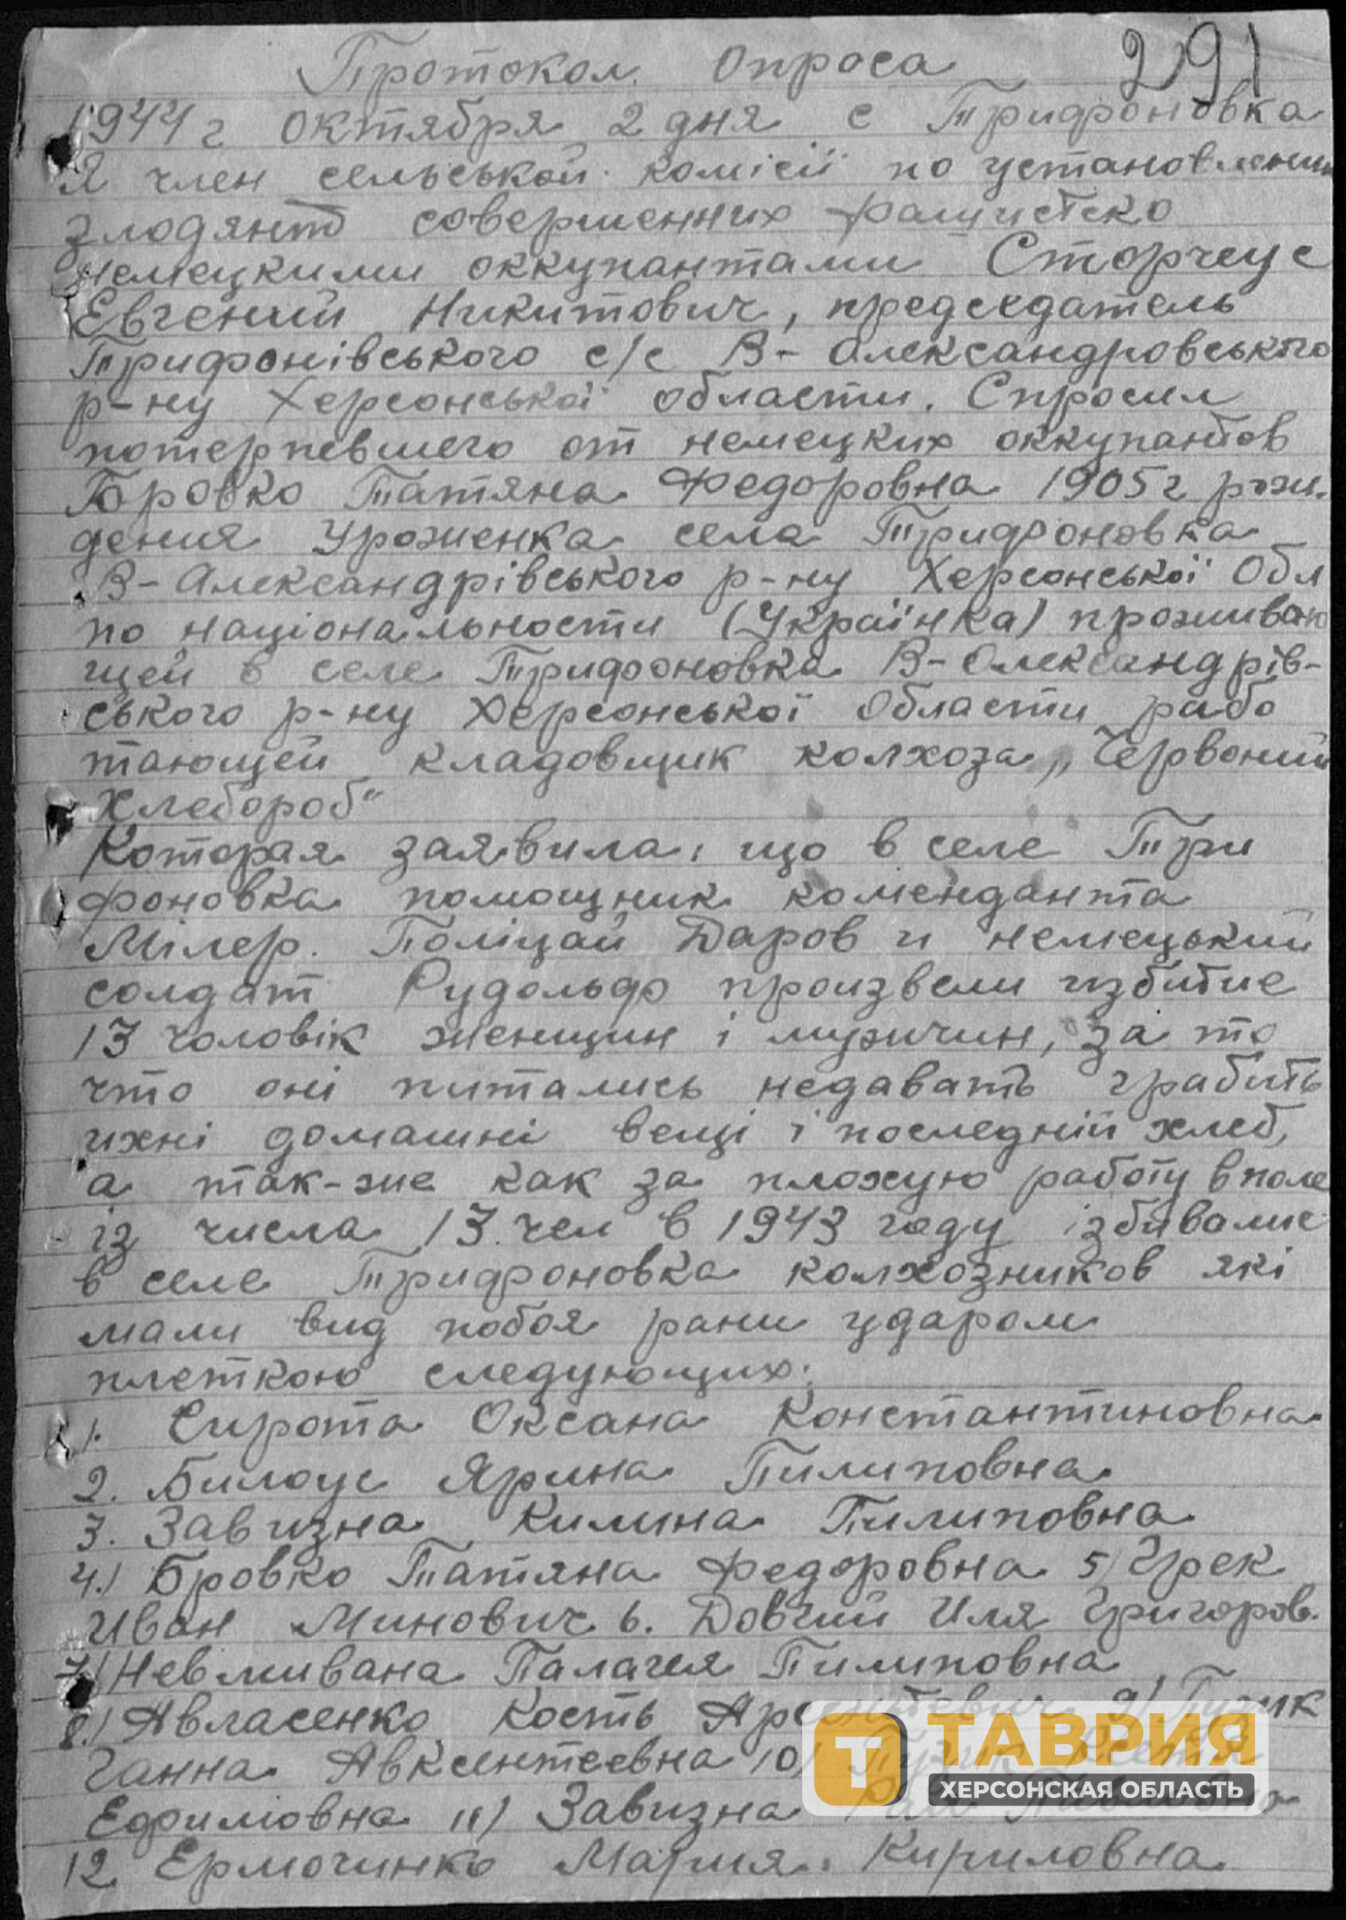 291
Протокол опроса
1944 г октября 2 дня с Трифроновка
Я член сельськой комісії по установлении
злодянтв совершенних фашистско
немецкими оккупантами Сторчеус
Евгений Никитович, председатель
Трифонівського с/с В-Александровського
р-ну Херсонської области. Спросил
потерпевшего от немецких оккупантов
Бровко Татяна Федоровна 1905 г рож-
дения Уроженка села Трифроновка
В-Александрівського р-ну Херсонської Обл
по національности (Українка) проживаю
щей в селе Трифоновка В-Олександрів-
ського р-ну Херсонської Области рабо
тающей кладовщик колхоза „Червоний
Хлебороб"
Которая заявила, що в селе Три
фоновка помощник коменданта
Мілер. Поліцай Даров и немецький
солдат Рудольф произвели избитие
13 чоловік женщин і мужчин, за то
что оні питались недавать грабить
ихні домашні вещі і последній хлеб,
а так-же как за плохую работу в поле
із числа 13 чел в 1943 году ізбивалис
в селе Трифроновка колхозников які
мали вид побоя рани ударом
плеткою следующих:
1. Сирота Оксана Константиновна
2. Билоус Ярина Пилиповна
3. Завизна Килина Пилиповна
4.) Бровко Татяна Федоровна 5) Грек
Иван Минович 6. Довгий Иля Григоров.
7) Невмивана Палагея Пилиповна
8.) Авласенко Кость 9)
Ганна Авксентеевна 10)
Ефимовна 11) Завизна
12 Ермочинко Мария Кириловна
ТАВРИЯ
ХЕРСОНСКАЯ ОБЛАСТЬ